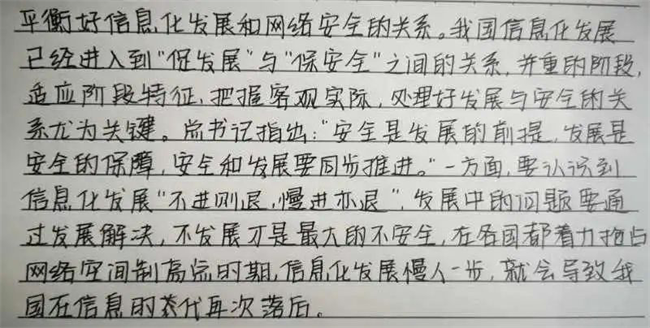 平衡好信息化发展和网络安全的关系。我国信息化发展
已经进入到“促发展”与“保安全”之间的关系,并重的阶段,
适应阶段特征,把握客观实际,处理好发展与安全的关
系尤为关键。总书记指出:“安全是发展的前提,发展是
安全的保障,安全和发展要同步推进。”一方面,要认识到
信息化发展“不进则退,慢进亦退”,发展中的问题要通
过发展解决,不发展才是最大的不安全,在各国都着力抢占
网络空间制高点时期,信息化发展慢人一步,就会导致我
国在信息时代再次落后。